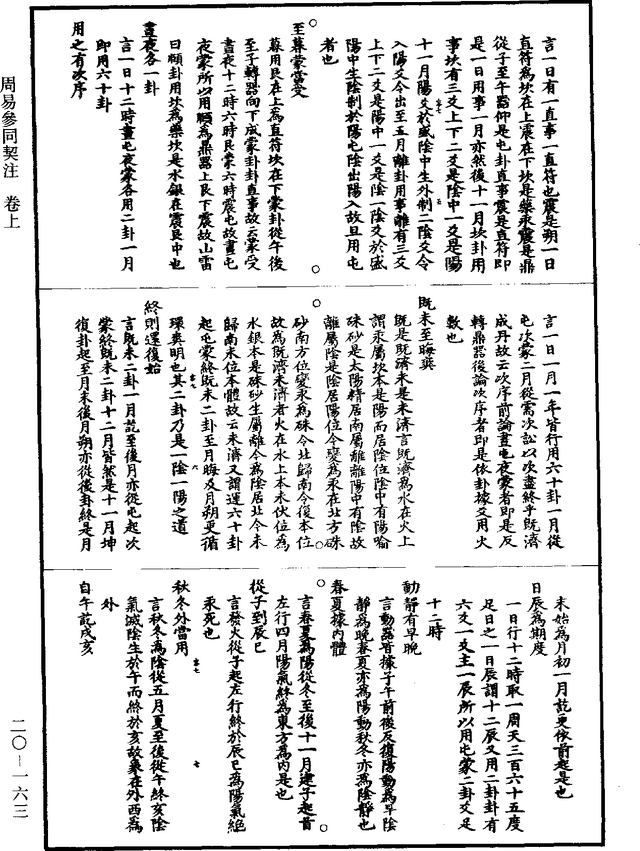 周易參同契注　卷上
二〇—一六三
言一日有一直事一直符也震是朔一日
直符為坎在上震在下坎是藥汞震是鼎
從子至午器仰是屯卦直事震是直符即
是一日用事一月亦然後十一月坎卦用
事坎有三爻上下二爻是陰中一爻是陽
十一月陽爻於盛陰中生外制二陰爻令
入陽爻今出至五月離卦用事離有三爻
上下二爻是陽中一爻是陰一陰爻於盛
陽中生陰制於陽屯陰出陽入故旦用屯
者也
至暮蒙當受
暮用艮在上為直符坎在下蒙卦從午後
至子轉器向下成蒙卦卦直事故云蒙受
晝夜十二時六時艮蒙六時震屯故晝屯
夜蒙所以用頤為鼎器上艮下震故山雷
曰頤卦用坎為藥坎是水銀在震艮中也
晝夜各一卦
言一日十二時晝屯夜蒙各用二卦一月
即用六十卦
用之有次序
言一日一月一年皆行用六十卦一月從
屯次蒙二月從需次訟以次盡終乎既濟
成丹故云次序前論晝屯夜蒙者即是反
轉鼎器後論次序者即是依卦據爻用火
數也
既未至晦爽
既是既濟未是未濟言既濟為水在火上
謂汞屬坎本是陽而居陰位陰中有陽喻
硃砂是太陽精居南屬離陽中有陰故
離屬陰是陰居陽位今變為汞在北方硃
砂南方位變汞為硃令北歸南令復本位
故為既濟未濟者火在水上本未伏位為
水銀本是硃砂生屬離今為陰居北今未
歸南未位本體故云未濟又謂運六十卦
起屯蒙終既未二卦至月晦及月朔更循
環爽明也其二卦乃是一陰一陽之道
終則還復始
言既未二卦一月訖至後月亦從屯起次
蒙終既未二卦十二月皆然是十一月坤
復卦起至月末後月朔亦從後卦終是月
末始為月初一月訖更依前起是也
日辰為期度
一日行十二時取一周天三百六十五度
足日之一日辰謂十二辰又用二卦卦有
六爻一爻主一辰所以用屯蒙二卦爻足
十二時
動靜有早晚
言動器皆據子午前後反復陽動為早陰
靜為晚春夏亦為陽動秋冬亦為陰靜也
春夏據內體
言春夏為陽從冬至後十一月建子起首
左行四月陽氣終為東方為內是也
從子到辰巳
言發火從子起左行終於辰巳為陽氣絕
汞死也
秋冬外當用
言秋冬為陰從五月夏至後從午終亥陰
氣滅陰生於午而終於亥故象在外西為
外
自午訖戌亥